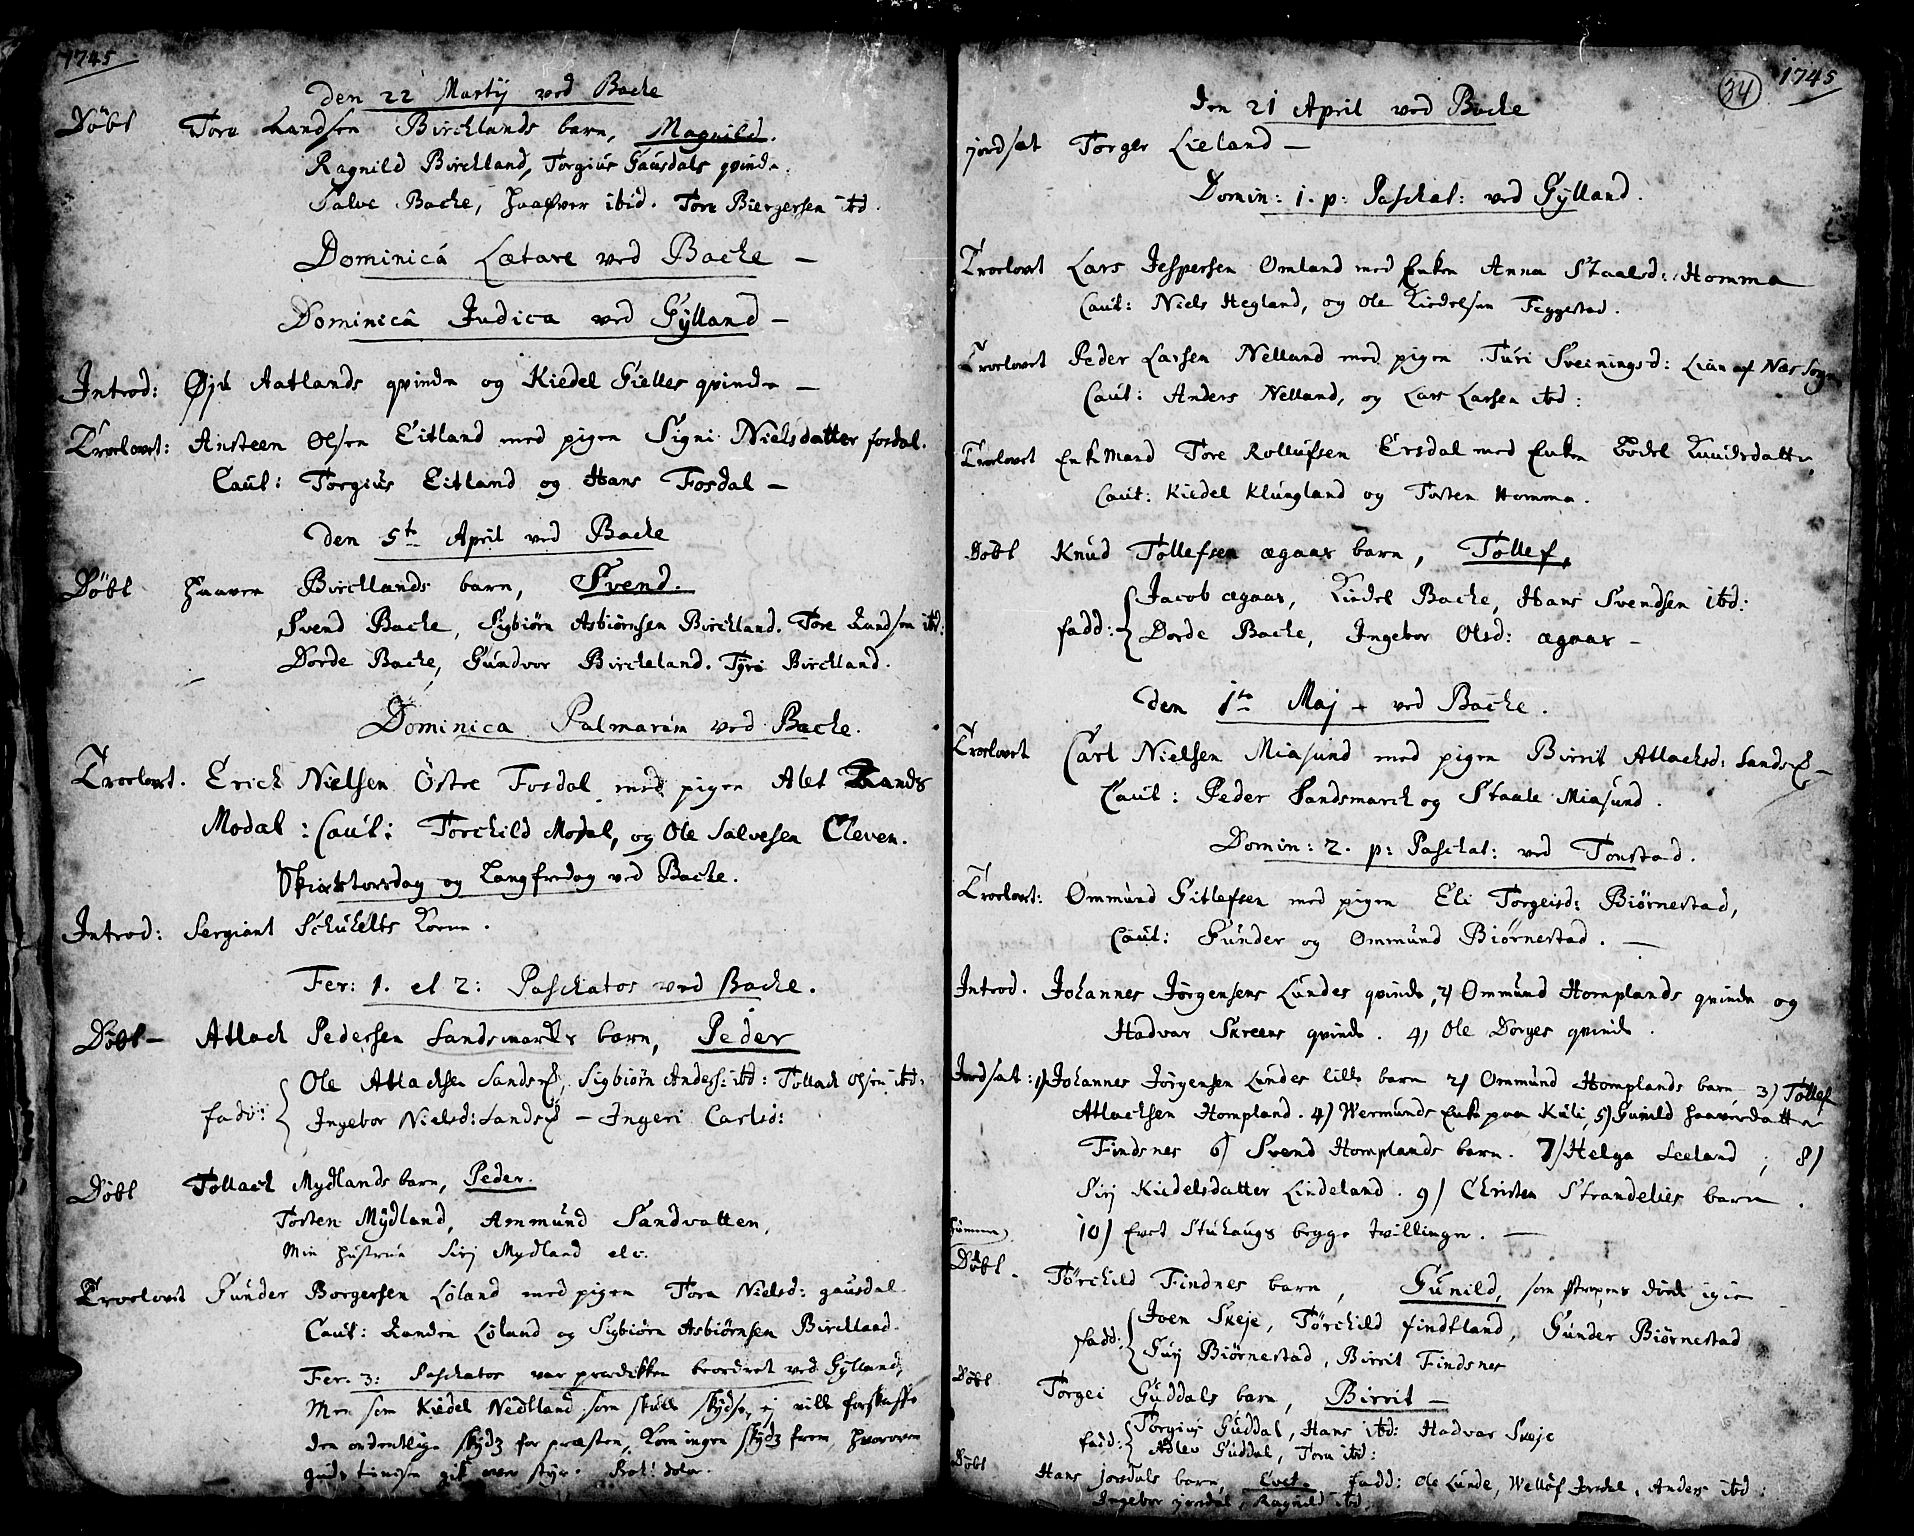 1745
Den 22 Martij ved Backe
Döbt Tore Randsen Birchlands barn, Magnild.
Ragnild Birchland, Torgius Gausdals qvinde.
Salve Backe, Haaver ibid. Tore Biergersen ibd.
Dominicâ Lætare ved Backe —
Dominicâ Judica ved Gÿlland —
Introd: Øju Aatlands qvinde og Kiedel Gielles qvinde —
Troelovet: Ansteen Olsen Eitland med pigen Signi Nielsdatter fosdal.
Caut: Torgius Eitland og Hans Fosdal —
Den 5te April ved Backe
Döbt Haaven Birchlands barn, Svend.
Svend Backe, Sigbiörn Asbiörnsen Birchland. Tore Randsen ibd:
Dorde Backe, Gundvor Birckeland. Tÿri Birchland.
Dominica Palmarum ved Backe.
Troelovet. Erich Nielsen Östre Fosdal med pigen Alet Rands
Modal: Caut: Torchild Modal, og Ole Salvesen Cleven.
Skiertorsdag og Langfredag ved Backe.
Introd: Sergiant Schuhelts Kone.
Fer: 1. et 2: Paschatos ved Backe.
Döbt — Atlack Pedersen Landsmarks barn, Peder
fadd: Ole Atlachsen Sands, Sigbiörn Anders: ibd: Tollack Olsen ibd.
Ingebor Nielsd: Sands — Ingeri Carlsd:
Döbt Tollack Mydlands barn, Peder.
Torsten Mÿdland, Ammund Sandvatten,
Min hustrue Sirj Mydland etc.
Troelovet Gunder Borgersen Löland med pigen Tora Nielsd: gausdal.
Caut: Randen Löland og Sigbiörn Asbiörnsen Birchland.
Fer. 3: Paschatos var prædikken beordret ved Gÿlland,
Men som Kiedel Nedland som skulle skÿdse, ej ville forskaffe
den ordentlige skÿdz for præsten, Kom ingen skÿdz frem, hvorover
guds tienisten gik over styr.
34
1745
Den 21 April ved Backe
jordsat Torger Lieland —
Domin: 1. p: Paschat: ved Gÿlland.
Troelovet Lars Jespersen Omland med Enken Anna Staalsd: Homma
Caut: Niels Hegland, og Ole Kiedelsen Feggestad.
Troelovet Peder Larsen Nelland med pigen Turi Sveiningsd: Lian af Nes sogn
Caut: Anders Nelland, og Lars Larsen ibd:
Troelovet Enkmand Tore Rollufsen Ersdal med Enken Bodel Knudsdatter,
Caut: Kiedel Klungland og Torsten Homma.
Döbt Knud Tollefsen ægaas barn, Tollef,
fadd: Jacob ægaas, Kiedel Backe, Hans Svendsen ibd:
Dorde Backe, Ingebor Olsd: ægaas —
Den 1te Maj ved Backe.
Troelovet Carl Nielsen Miasund med pigen Birrit Atlachsd: Sands —
Caut: Peder Sandsmarck og Staale Miasund.
Domin: 2. p: Paschat: ved Tonstad.
Troelovet: Ommund Gitlefsen med pigen Eli Torgeisd: Biörnestad,
Caut: Gunder og Ommund Biörnestad. —
Introd. Johannes Jörgensens Lundes qvinde, 2) Ommund Homplands qvinde og
Hadvar Skreens qvinde. 4) Ole Dorges qvinde.
Jordsat: 1) Johannes Jörgensen Lundes lille barn 2) Ommund Homplands barn 3) Tollef
Atlachsen Hompland. 4) Wermunds Enke paa Kuli, 5) Gunild Haaversdatter
Findsnes 6) Svend Homplands barn. 7) Helga Leeland; 8)
Sirj Kiedelsdatter Lindeland. 9) Christen Strandelies barn.
10) Evet Stuhaugs begge tvillinger. —
Döbt. Törchild Findnes barn, Gunild, som strapens döde igien
fadd: Joen Skeje, Törchild findtland, Gunder Biörnestad
Gurj Biörnestad, Birrit Findsnes
Döbt Torgei Guddals barn, Birrit —
fadd: Torgius Guddal, Hans ibd: Hadvar Skeje
Adlev Guddal, Tora ibd:
Döbt Hans josdals barn, Evet. fadd: Ole Lunde, Wellof Josdal, Anders ibd:
Ingebor josdal, Ragnild ibd.